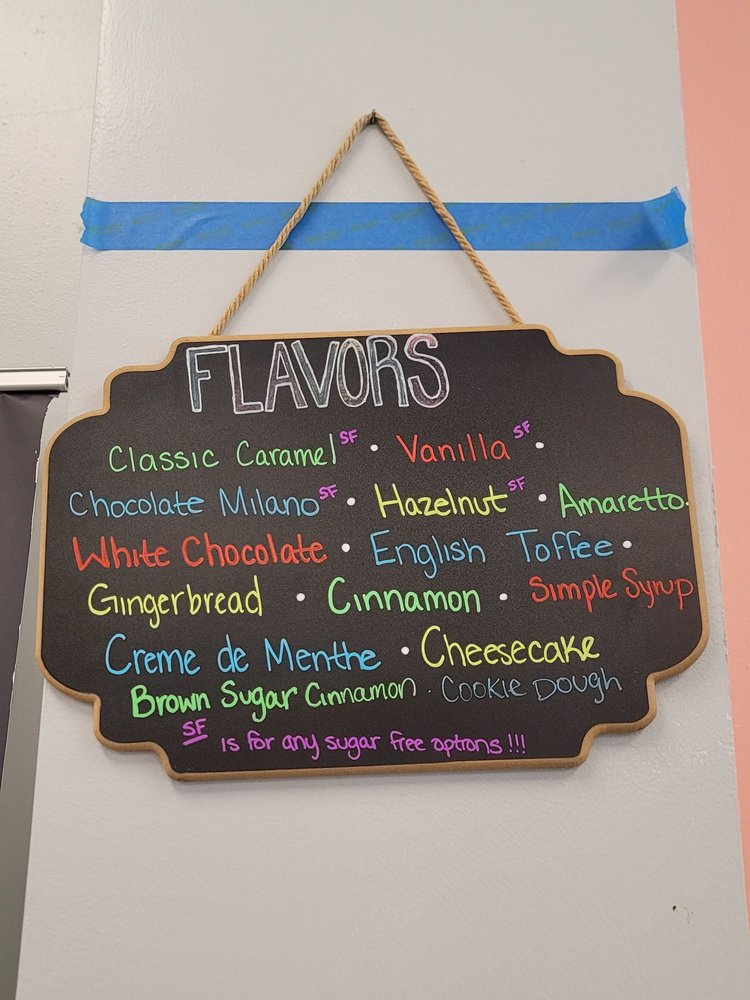 FLAVORS
Classic Caramel SF • Vanilla SF •
Chocolate Milano SF • Hazelnut SF • Amaretto •
White Chocolate • English Toffee •
Gingerbread • Cinnamon • Simple Syrup
Creme de Menthe • Cheesecake
Brown Sugar Cinnamon • Cookie Dough
SF is for any sugar free options!!!